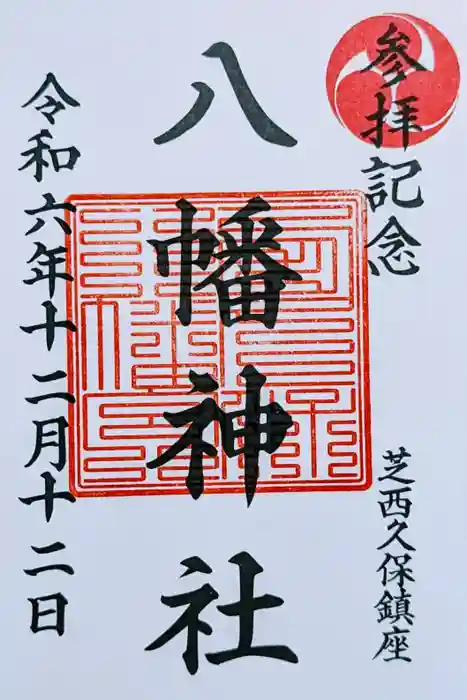 参拝記念
芝西久保鎮座
八幡神社
令和六年十二月十二日